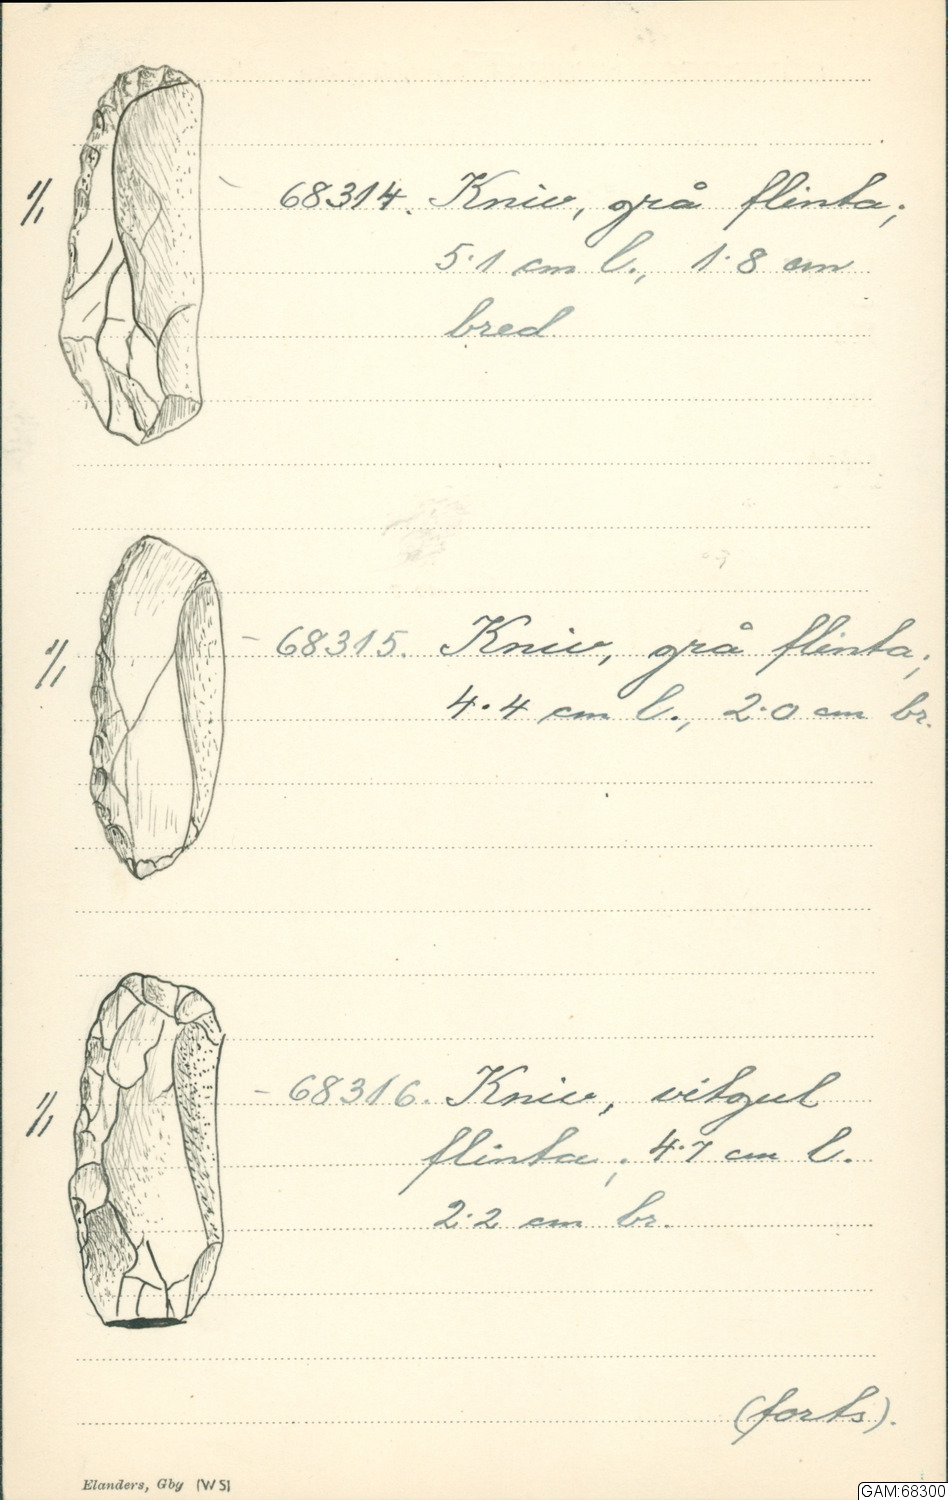 1/1 - 68314. Kniv, grå flinta;
5·1 cm l., 1·8 cm
bred
1/1 - 68315. Kniv, grå flinta;
4·4 cm l., 2·0 cm br.
1/1 - 68316. Kniv, vitgul
flinta; 4·7 cm l.
2·2 cm br.
(forts).
Elanders, Gbg (W S)
GAM:68300